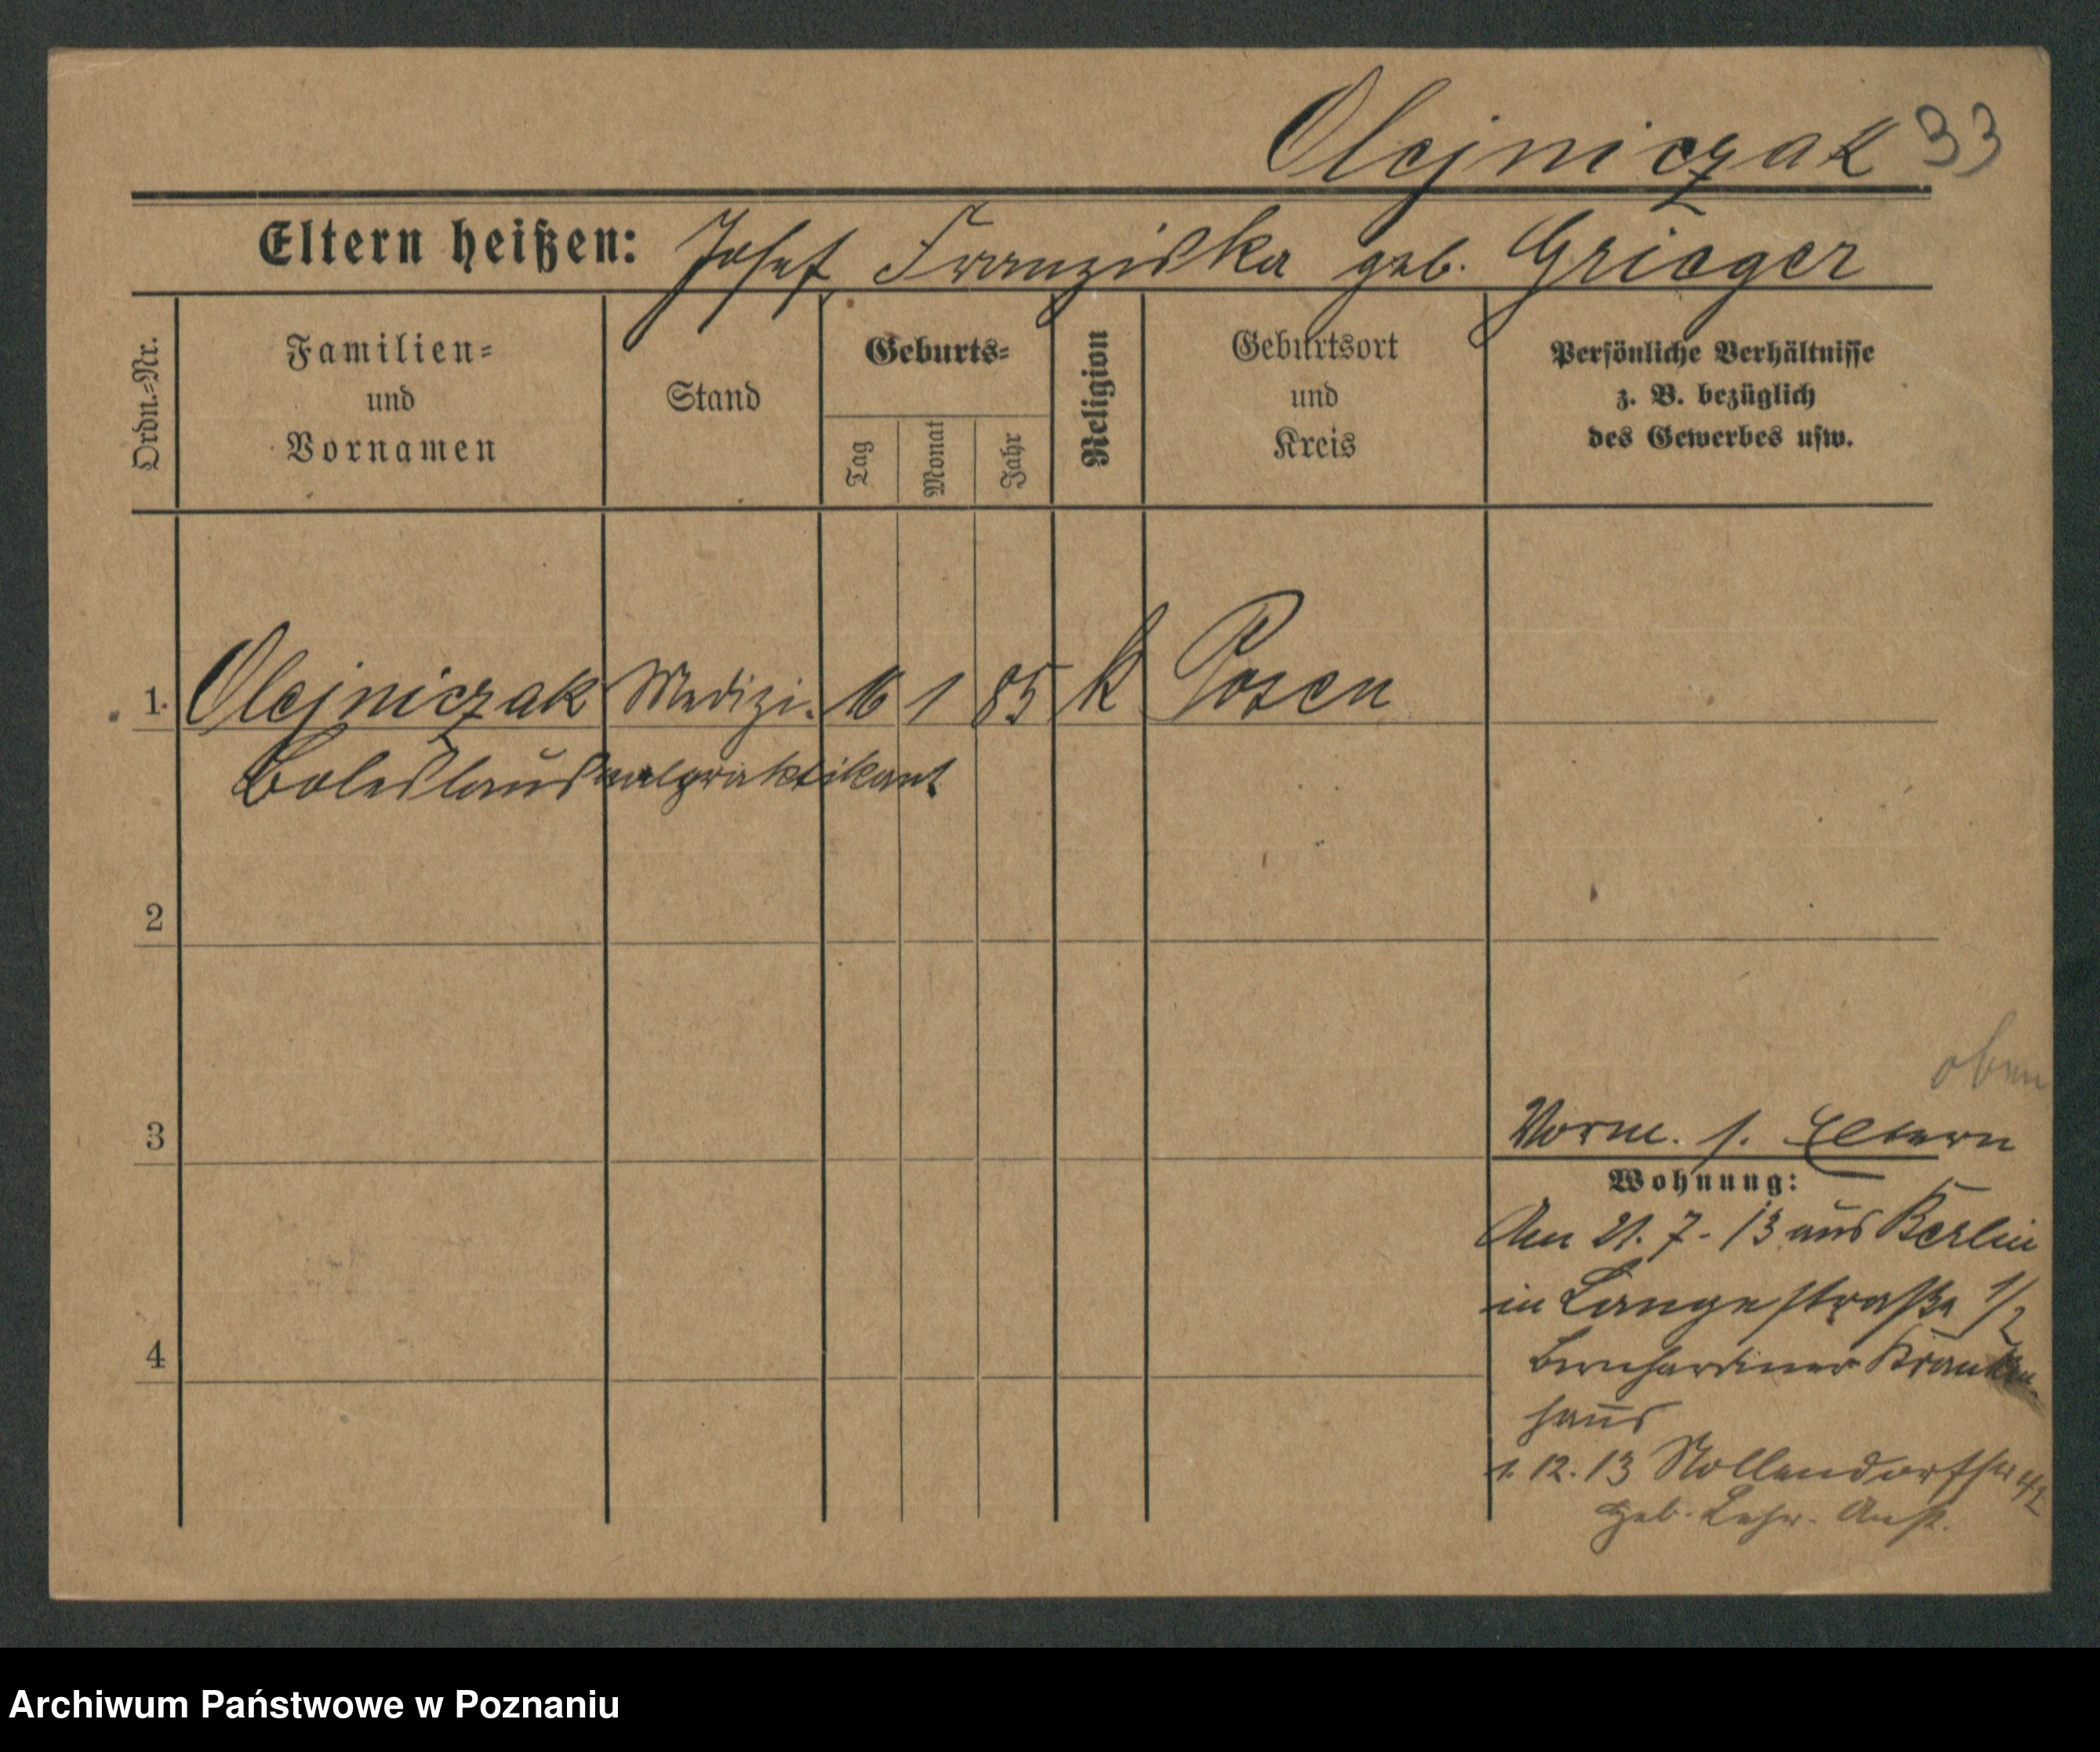 Olejniczak 33
Eltern heißen: Josef Franziska geb. Grieger
Ordn.-Nr.
Familien-
und
Vornamen
Stand
Geburts-
Tag
Monat
Jahr
Religion
Geburtsort
und
Kreis
Persönliche Verhältnisse
z. B. bezüglich
des Gewerbes usw.
1. Olejniczak Medizi- 16 1 85 k Posen
Boleslaus nalpraktikant
2
oben
3
Vorm. s. Eltern
Wohnung:
Am 21. 7. 13 aus Berlin
in Langestraße 1/2
4
Bernhardiner Kranken-
haus
1. 12. 13 Nollendorfstr
Heb. Lehr. Anst.
Archiwum Państwowe w Poznaniu